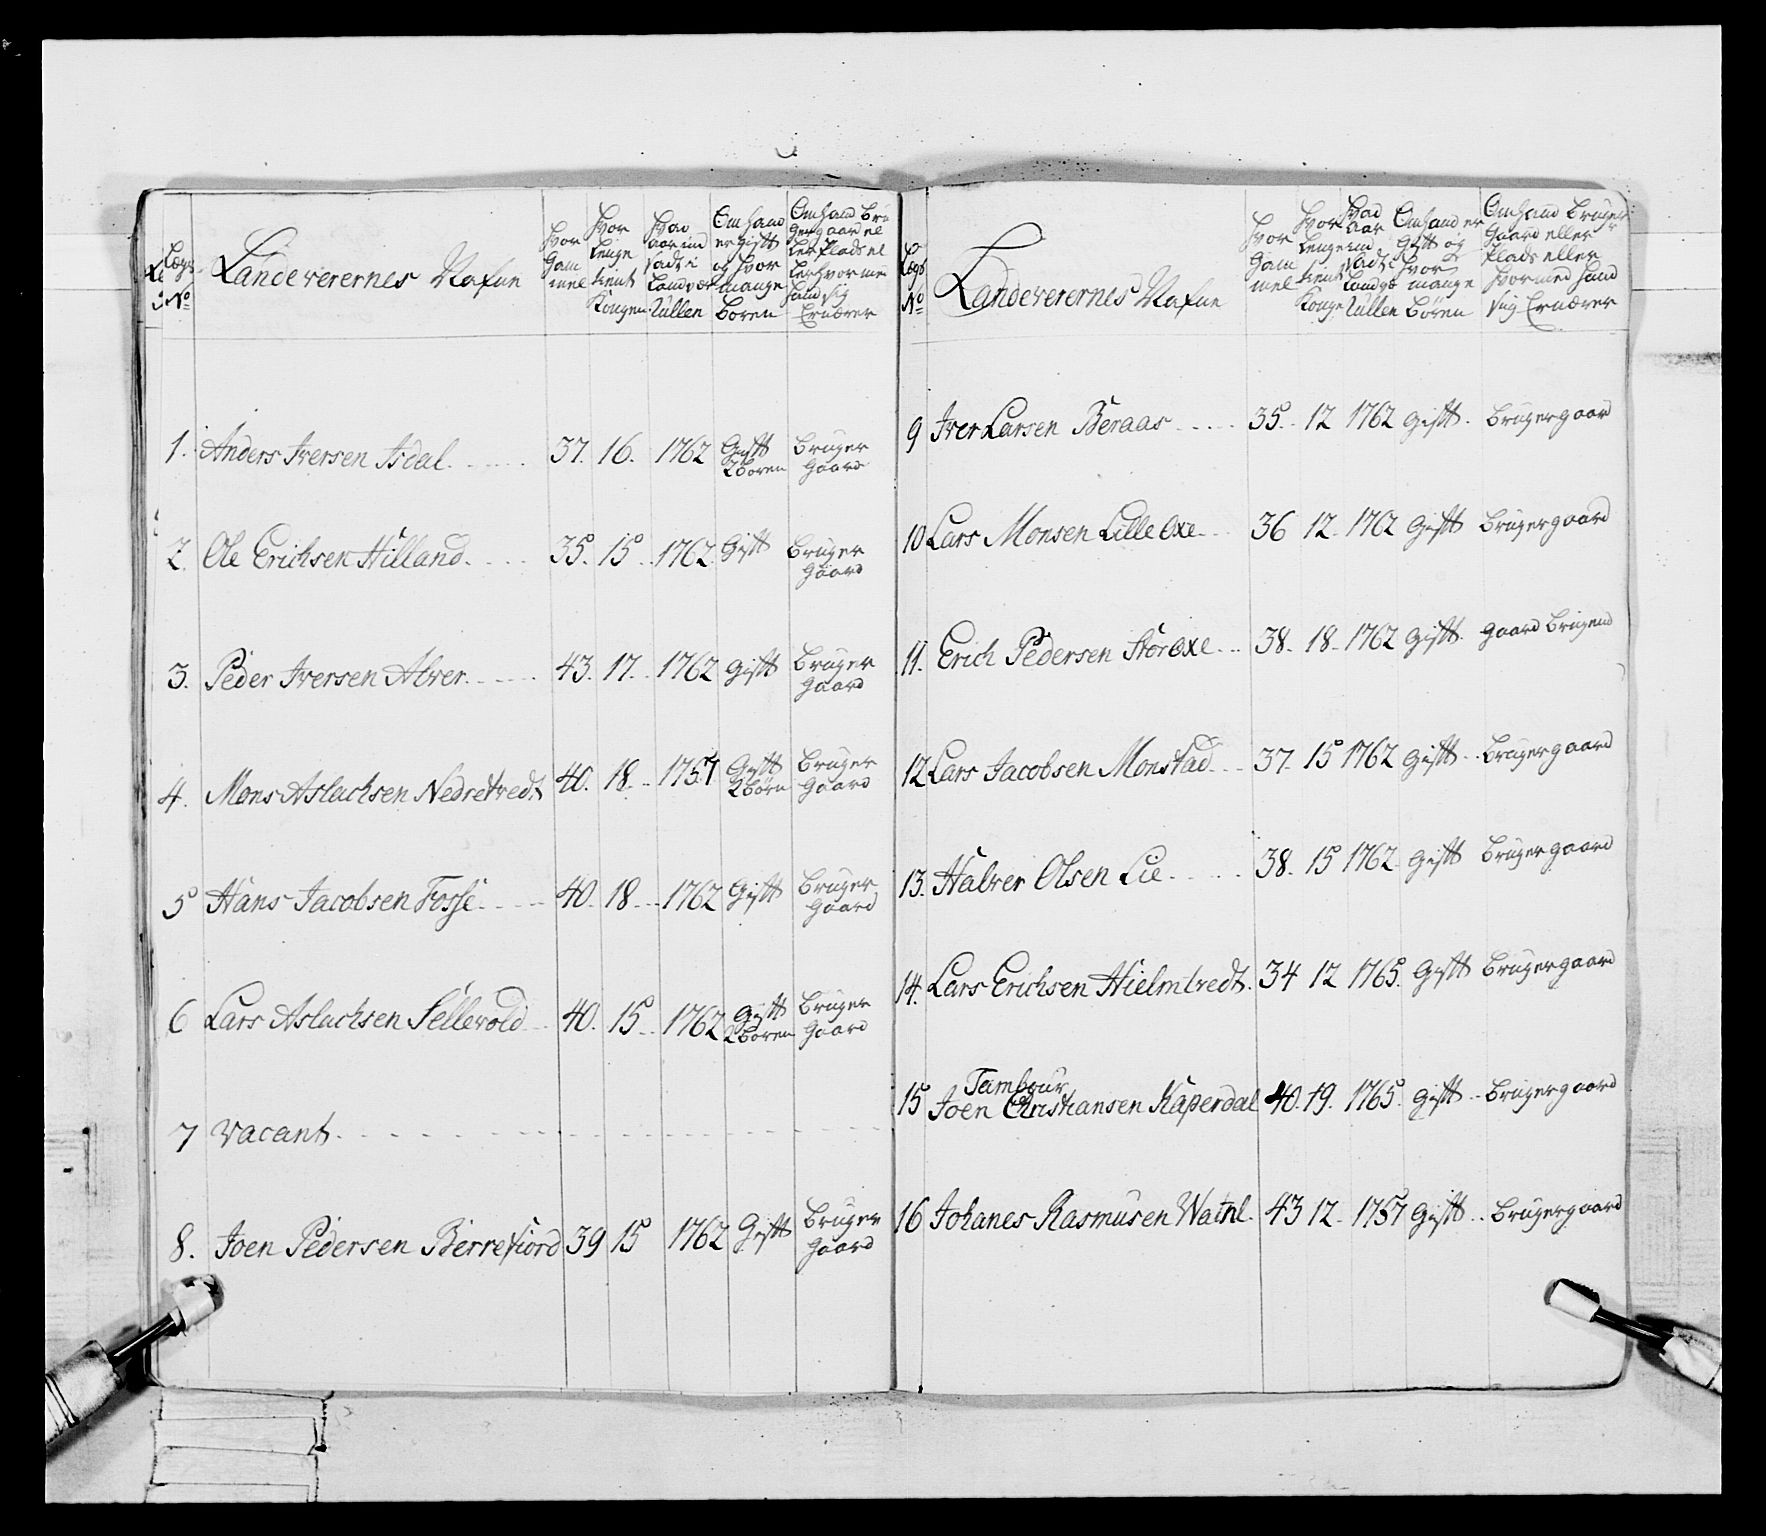 Lægs No
Landeverernes Nafne
Hvor Gam mel
Hvor lenge tient Kongen
Hvad aar ind sadt i Landvær Rullen
Om hand er gift og hvor mange børen
Om hand Bru ger gaard el ler Plads el ler hvor med hand sig Ernærer
1. Anders Iversen Isdal 37. 16. 1762 Gift 2 børen bruger gaard
2. Ole Erichsen Hilland 35. 15 1762 Gift bruger gaard
3. Peder Iversen Alver 43. 17. 1762 Gift bruger gaard
4. Mons Aslachsen Nedretvedt 40. 18 1757 Gift 2 børn bruger gaard
5 Hans Jacobsen Fosse 40. 18 1762 Gift bruger gaard
6 Lars Aslachsen Sellevold 40. 15 1762 Gift 2 børen bruger gaard
7 vacant
8. Joen Pedersen Berrefiord 39 15 1762 Gift bruger gaard
Lægs No
Landeverernes Nafne
Hvor Gam mel
Hvor lenge tient Konge
Hvad aar ind sadt i Landvæ Rullen
Om hand er Gift og hvor mange børen
Om hand bruger Gaard eller Plads eller hvormed hand siig Ernærer
9 Iver Larsen Beraas 35. 12 1762 gift. bruger gaard
10 Lars Monsen Lille Oxe 36 12 1762 gift bruger gaard
11. Erich Pedersen Stor Oxe 38. 18 1762 gift. gaard brugend
12 Lars Jacobsen Monstad 37. 15 1762 gift bruger gaard
13. Halver Olsen Lie 38. 15 1762 gift bruger gaard
14. Lars Erichsen Hielmtvedt. 34 12 1765. gift bruger gaard
Tambour
15 Joen Christiansen Kaperdal 40. 19. 1765. gift bruger gaard
16 Johanes Rasmusen Watnl. 43 12 1757 gift bruger gaard